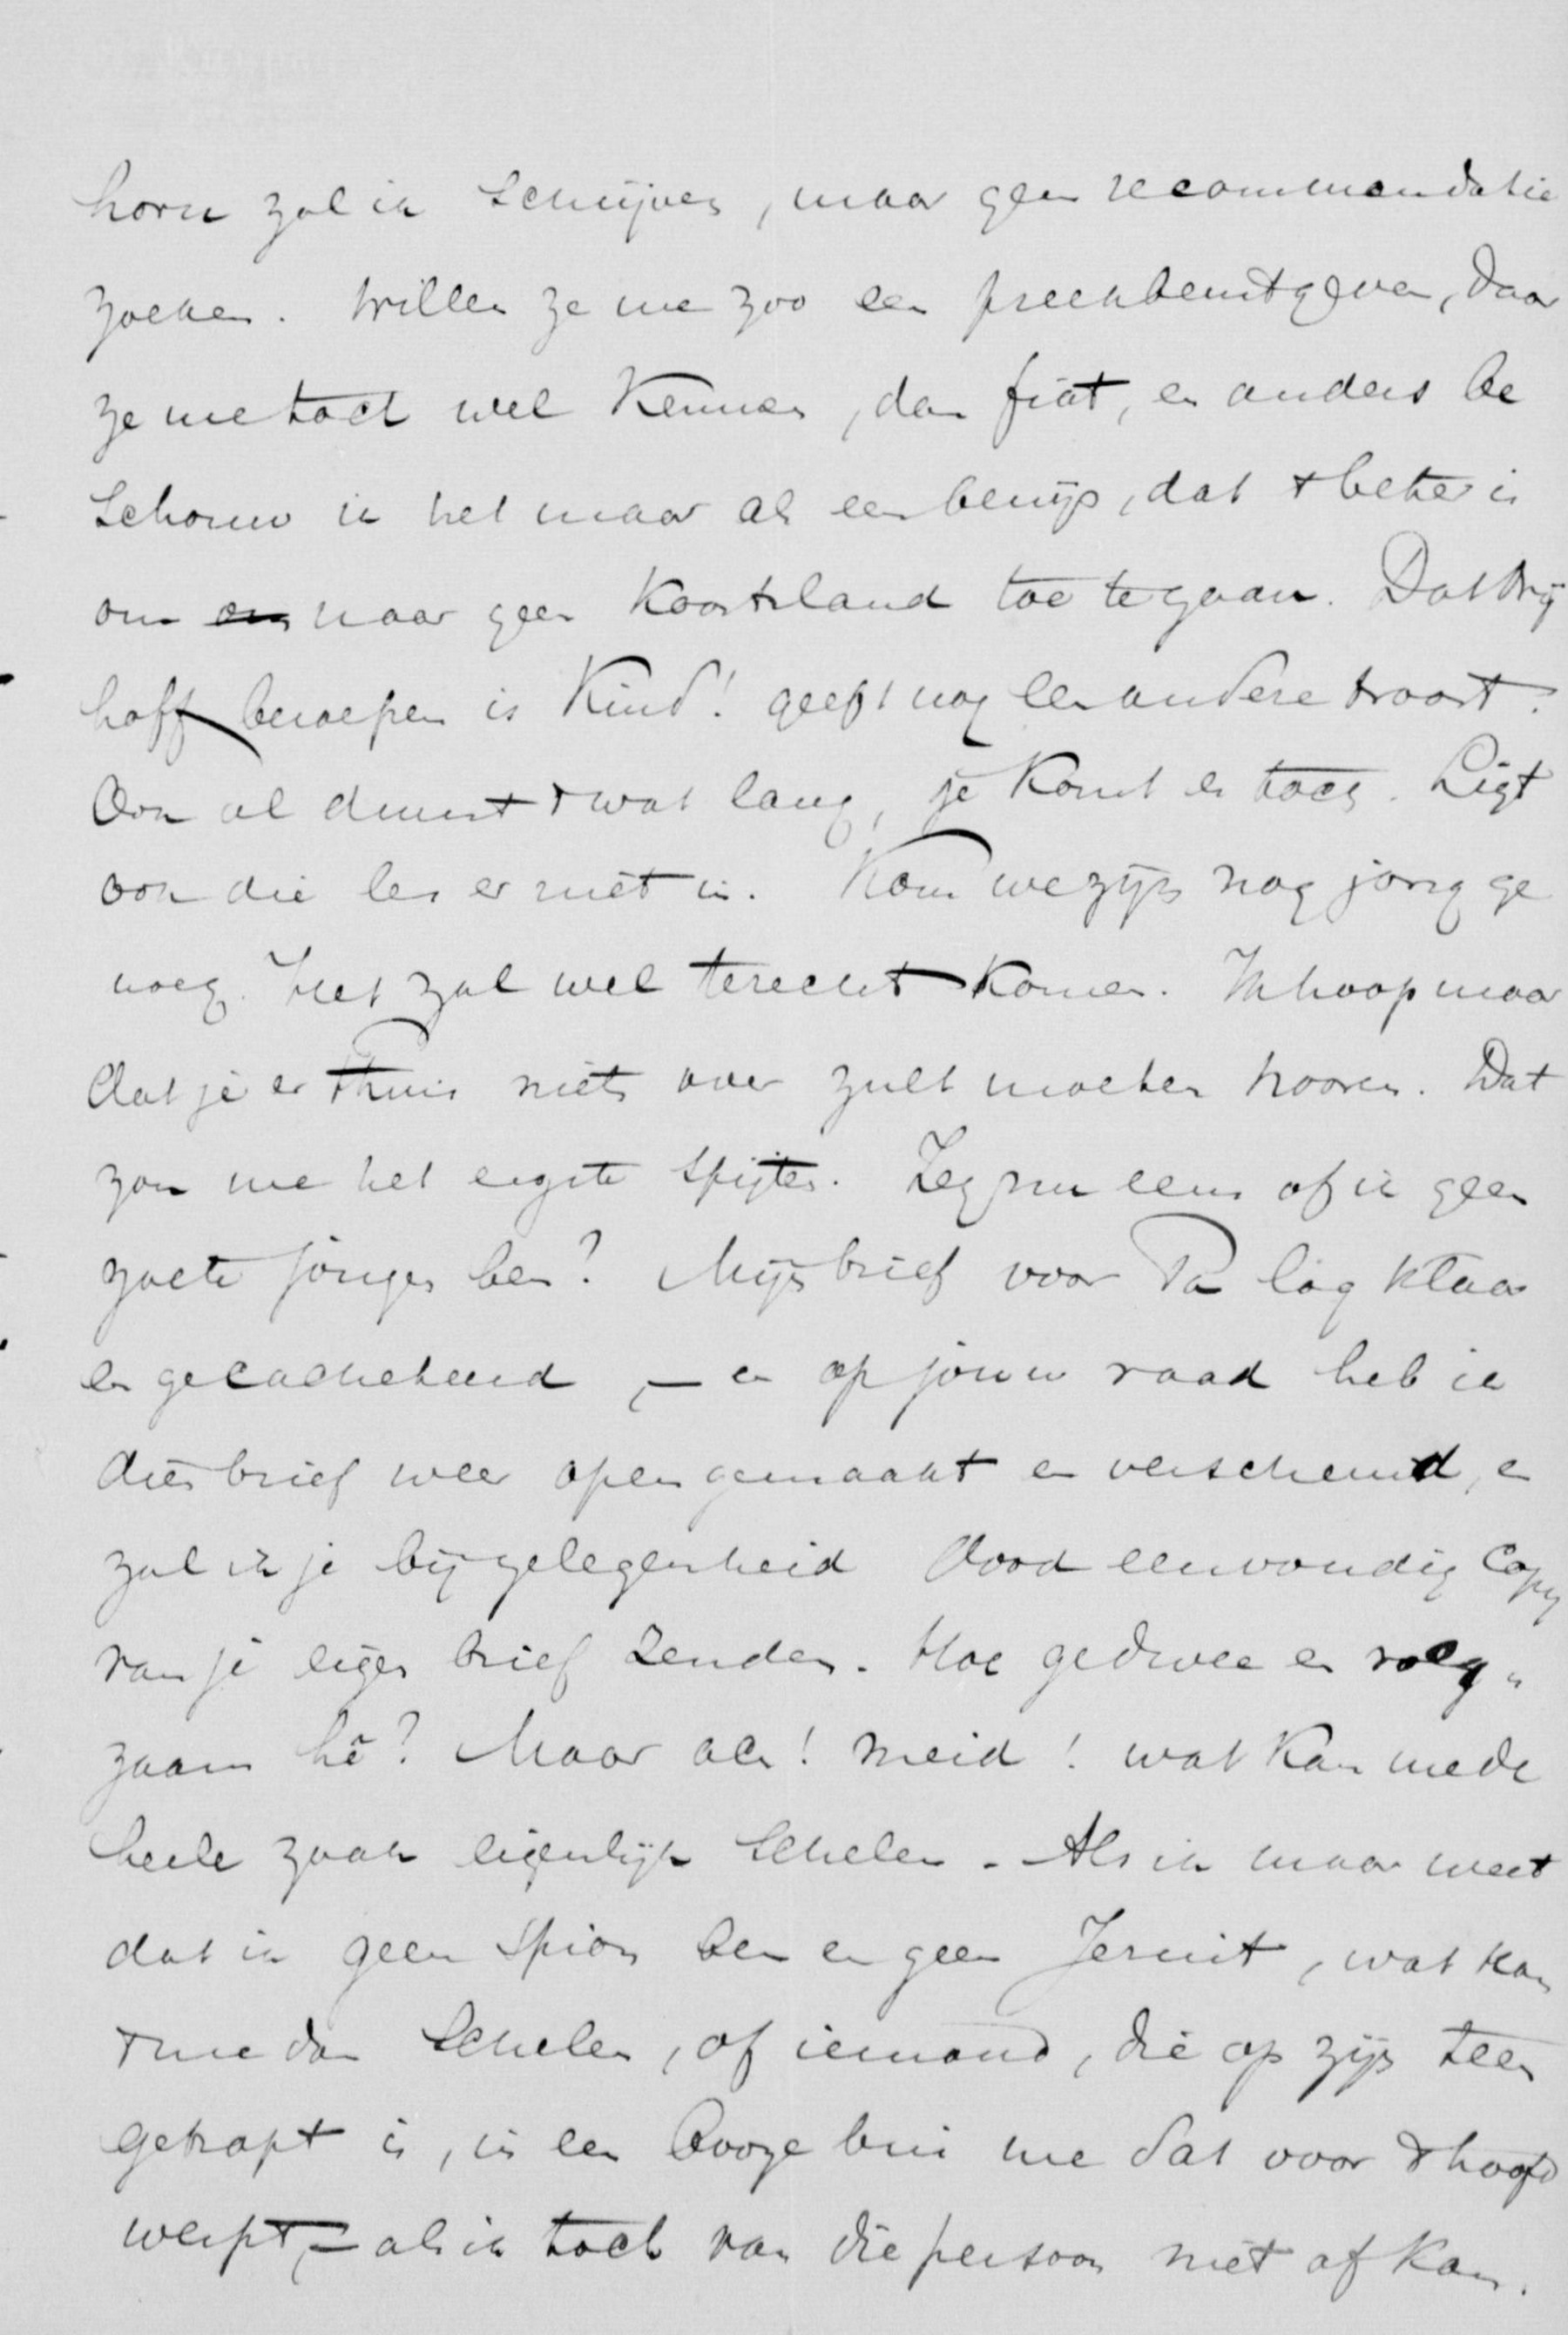 horn zal ik schrijven, maar geen recommandatie
zoeken. Willen ze me zoo een preekbeurt geven, daar
ze me toch wel kennen, dan fiat, en anders be
schouw ik het maar als een bewijs, dat 't beter is
om om naar geen Koartsland toe te gaan. Dat Brij
hoff beroepen is Kind! geeft nog een andere troost:
Ook al duurt 't wat lang, je komt er toch. Ligt
ook die les er niet in. Kom we zijn nog jong ge
noeg. Het zal wel terecht komen. Ik hoop maar
dat je er thuis niets over zult moeten hooren. Dat
zou me het ergste spijten. Zeg nu eens of ik geen
zoete jongen ben? Mijn brief voor Pa lag klaar
en gecacheteerd, – en op jouw raad heb ik
dien brief weer open gemaakt en verscheurd, en
zal ik je bij gelegenheid dood eenvoudig copy
van je eigen brief zenden. Hoe gedwee en volg„
zaam hè? Maar ach! meid! wat kan me de
heele zaak eigenlijk schelen. Als ik maar weet
dat ik geen spion ben en geen Jesuit, wat kan
't me dan schelen, of iemand, die op zijn teen
getrapt is, in een booze bui me dat voor 't hoofd
werpt, – als ik toch van die persoon niet af kan.